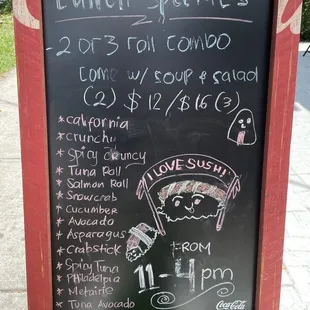 Lunch Specials
- 2 or 3 roll combo
Come w/ soup & salad
(2) $12 / $16 (3)
* California
* crunchy
* Spicy crunchy
* Tuna Roll
* Salmon Roll
* Snowcrab
* Cucumber
* Avocado
* Asparagus
* Crabstick
* Spicy Tuna
* Philadelpia
* Metairie
* Tuna Avocado
I LOVE SUSHI
FROM
11-4pm
Coca-Cola